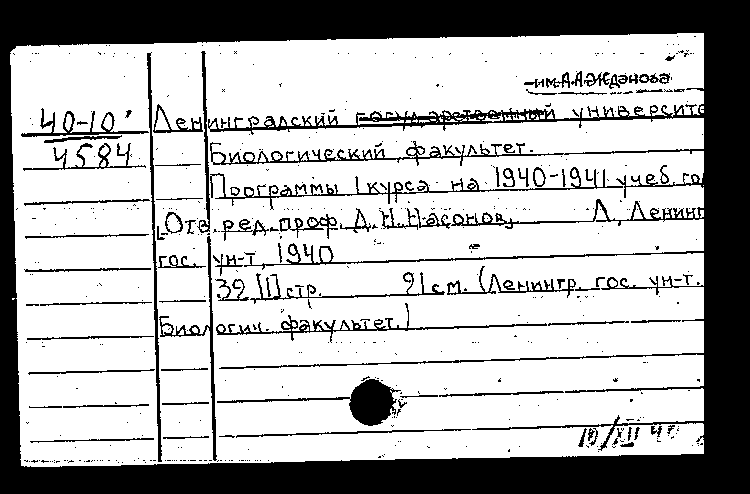 им. А. А. Жданова
40-10
4584
Ленинградский государственный университе
Биологический факультет.
Программы I курса на 1940-1941 учеб. го
[Отв. ред. проф. Д. Н. Насонов, Л., Ленинг
гос. ун-т, 1940
32, [1] стр. 21 см. (Ленингр. гос. ун-т.
Биологич. факультет.)
10/XII 40